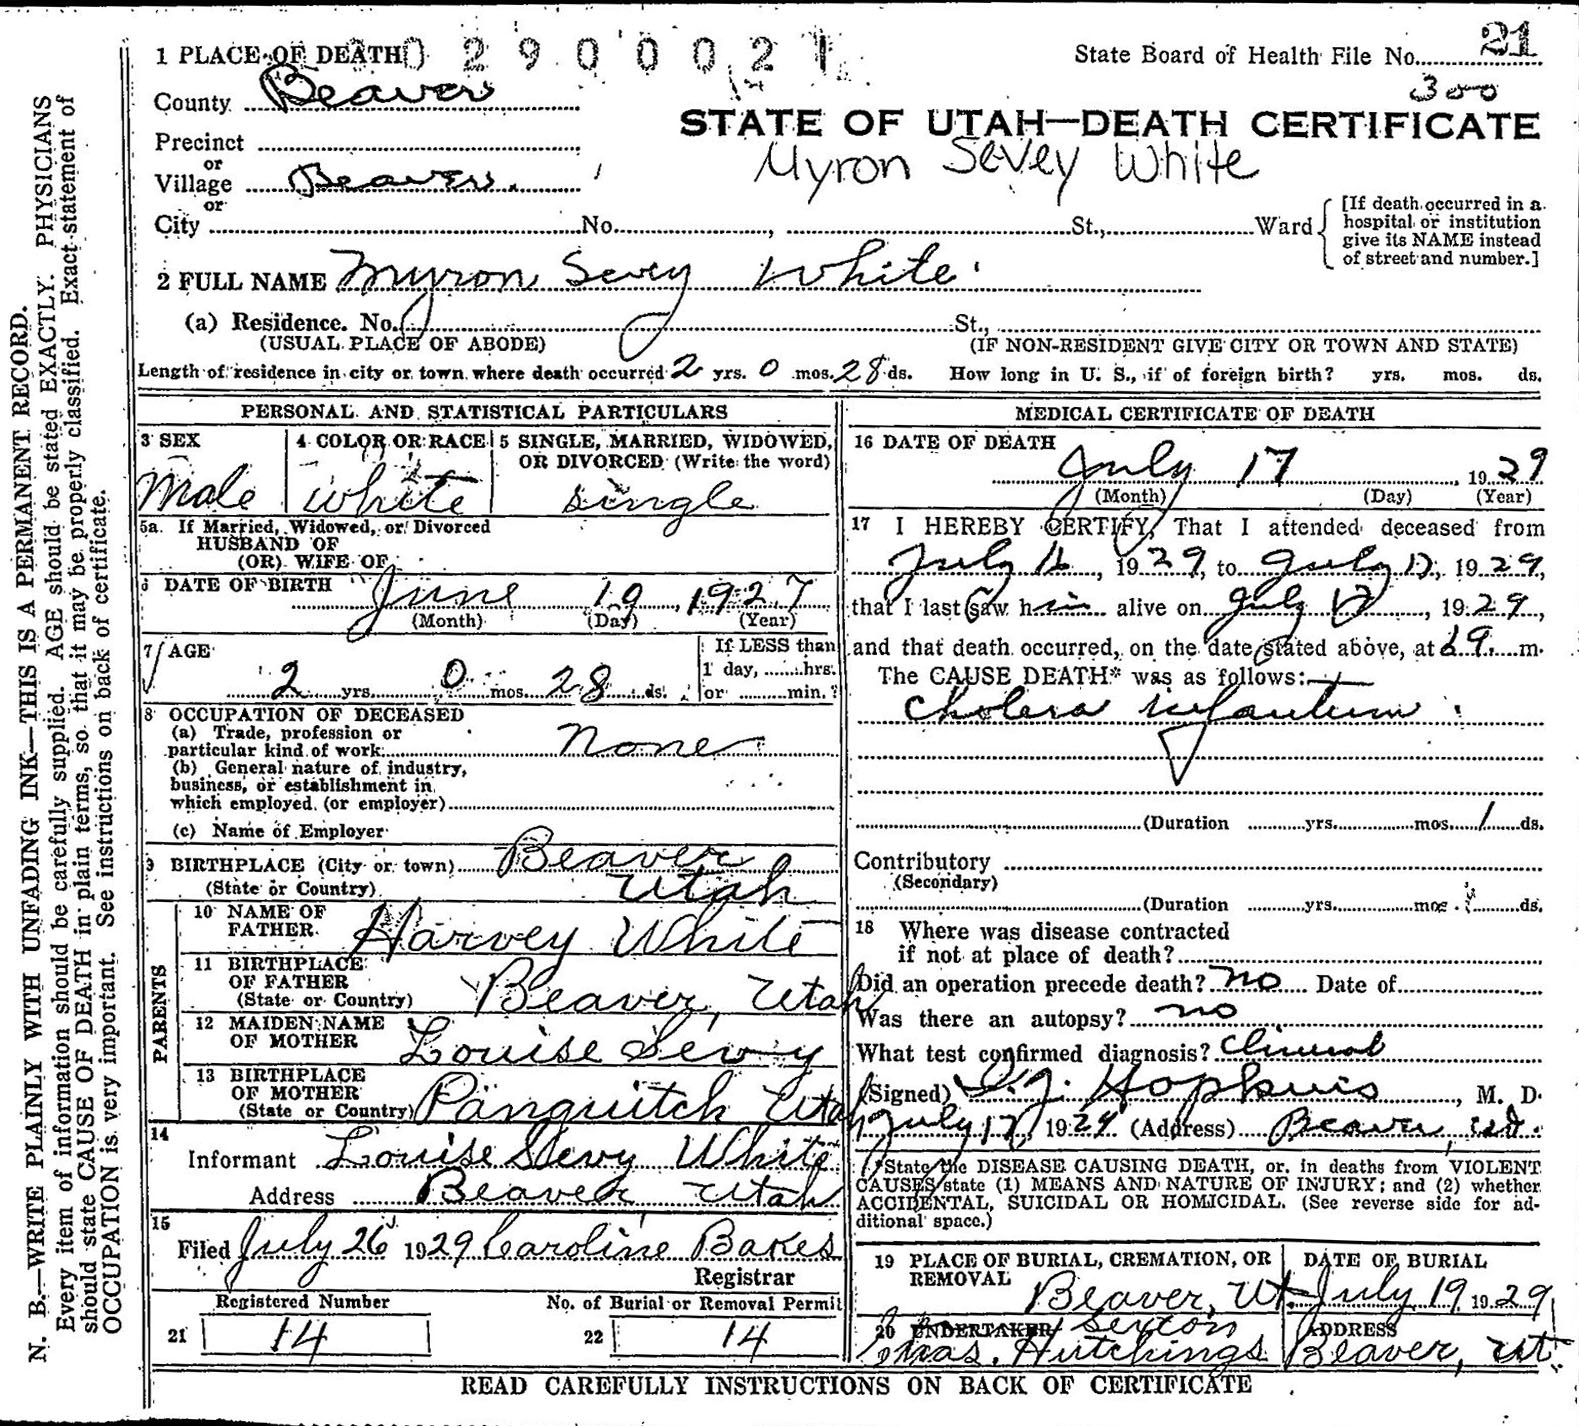 1 PLACE OF DEATH 0 2 9 0 0 0 2 1
State Board of Health File No. 21
County Beaver
300
STATE OF UTAH—DEATH CERTIFICATE
Myron Sevey White
Precinct
or
Village Beaver.
or
City No. , St., Ward
[If death occurred in a hospital or institution give its NAME instead of street and number.]
2 FULL NAME Myron Sevey White
(a) Residence. No. St.,
(USUAL PLACE OF ABODE) (IF NON-RESIDENT GIVE CITY OR TOWN AND STATE)
Length of residence in city or town where death occurred 2 yrs. 0 mos. 28 ds. How long in U. S., if of foreign birth? yrs. mos. ds.
PERSONAL AND STATISTICAL PARTICULARS
3 SEX
Male
4 COLOR OR RACE
White
5 SINGLE, MARRIED, WIDOWED,
OR DIVORCED (Write the word)
single
5a. If Married, Widowed, or Divorced
HUSBAND OF
(OR) WIFE OF
6 DATE OF BIRTH June 19, 1927
(Month) (Day) (Year)
7 AGE
2 yrs. 0 mos. 28 ds.
If LESS than
1 day, hrs.
or min.?
8 OCCUPATION OF DECEASED
(a) Trade, profession or
particular kind of work None
(b) General nature of industry,
business, or establishment in
which employed (or employer)
(c) Name of Employer
9 BIRTHPLACE (City or town) Beaver
(State or Country) Utah
PARENTS
10 NAME OF
FATHER Harvey White
11 BIRTHPLACE
OF FATHER
(State or Country) Beaver, Utah
12 MAIDEN NAME
OF MOTHER Louise Sevy
13 BIRTHPLACE
OF MOTHER
(State or Country) Panguitch Utah
14
Informant Louise Sevy White
Address Beaver Utah
15
Filed July 26 1929 Caroline Bakes
Registrar
Registered Number
21 14
No. of Burial or Removal Permit
22 14
MEDICAL CERTIFICATE OF DEATH
16 DATE OF DEATH
July 17, 1929
(Month) (Day) (Year)
17 I HEREBY CERTIFY, That I attended deceased from
July , 1929, to July 17, 1929,
that I last saw him alive on July 17, 1929,
and that death occurred, on the date stated above, at m.
The CAUSE DEATH* was as follows:
Cholera infantum
(Duration yrs. mos. 1 ds.
Contributory
(Secondary)
(Duration yrs. mos. ds.
18 Where was disease contracted
if not at place of death?
Did an operation precede death? no Date of
Was there an autopsy? no
What test confirmed diagnosis? Clinical
(Signed) Hopkins, M. D.
July 17, 1929 (Address) Beaver, Ut.
*State the DISEASE CAUSING DEATH, or, in deaths from VIOLENT
CAUSES state (1) MEANS AND NATURE OF INJURY; and (2) whether
ACCIDENTAL, SUICIDAL OR HOMICIDAL. (See reverse side for ad-
ditional space.)
19 PLACE OF BURIAL, CREMATION, OR
REMOVAL
Beaver, Ut.
DATE OF BURIAL
July 19 1929
20 UNDERTAKER Sexton
Chas. Hutchings
ADDRESS
Beaver, Ut.
READ CAREFULLY INSTRUCTIONS ON BACK OF CERTIFICATE
N. B.—WRITE PLAINLY WITH UNFADING INK—THIS IS A PERMANENT RECORD.
Every item of information should be carefully supplied. AGE should be stated EXACTLY. PHYSICIANS
should state CAUSE OF DEATH in plain terms, so that it may be properly classified. Exact statement of
OCCUPATION is very important. See instructions on back of certificate.